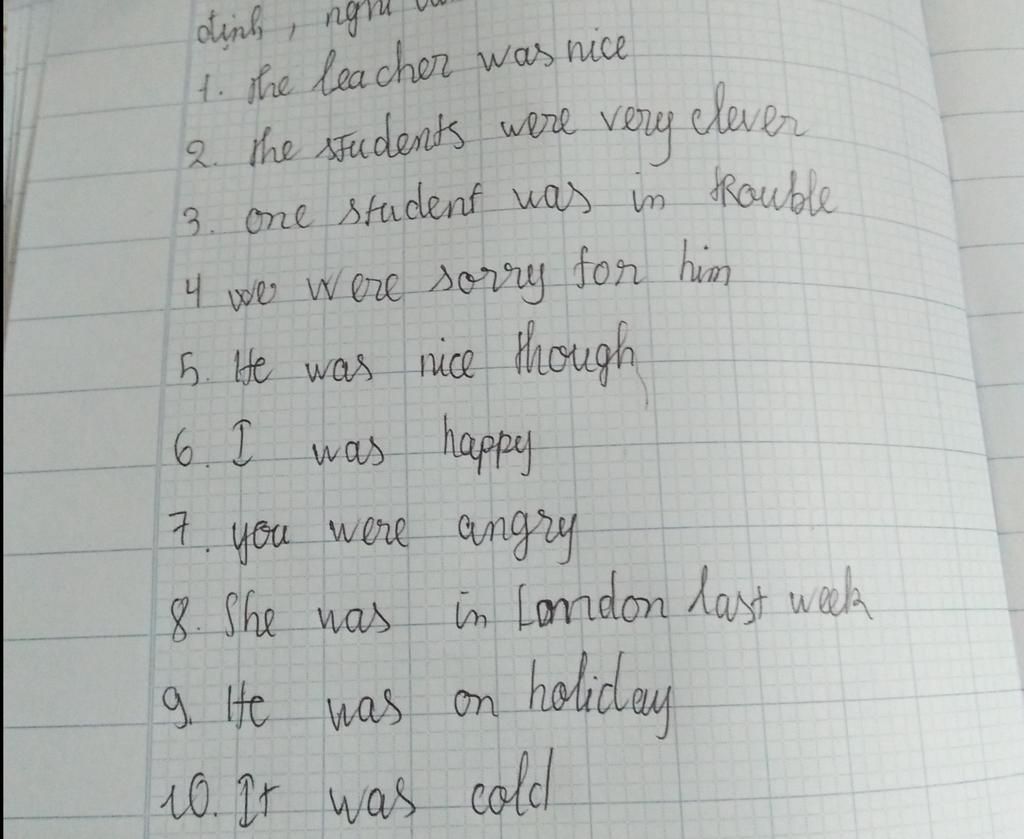 định, nghi
1. the teacher was nice
2. the students were very clever
3. one student was in trouble
4 we were sorry for him
5. He was nice though
6. I was happy
7. you were angry
8. She was in London last week
9. He was on holiday
10. It was cold